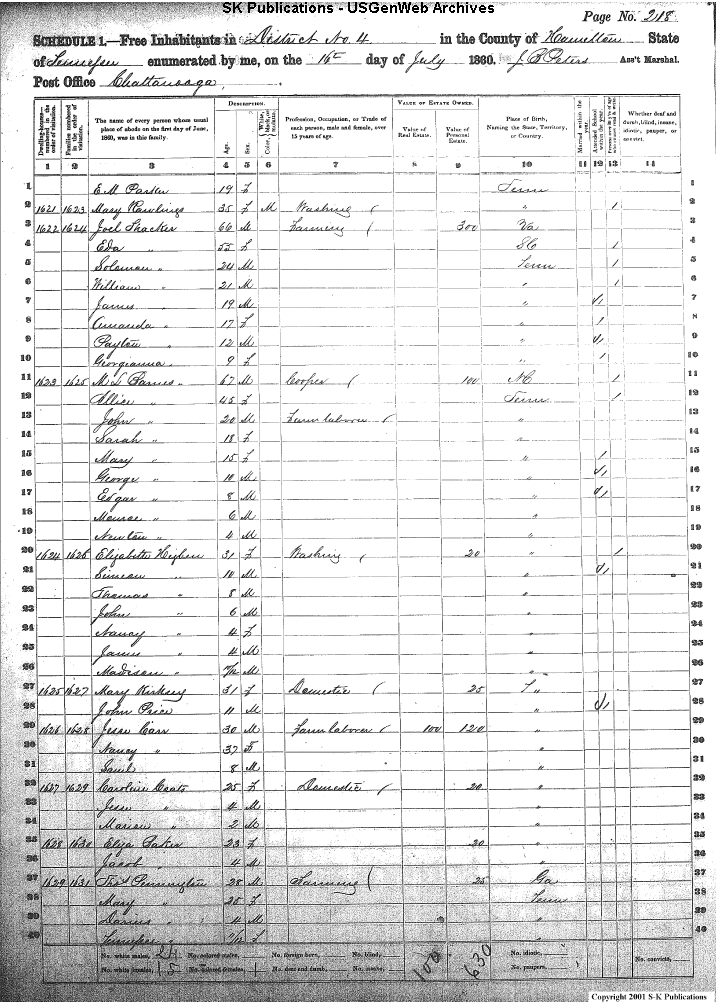 SK Publications - USGenWeb Archives
Page No. 218
SCHEDULE 1.—Free Inhabitants in District No. 4 in the County of Hamilton State
of Tennessee enumerated by me, on the 16th day of July 1860. J C Peters Ass't Marshal.
Post Office Chattanooga
Dwelling-houses numbered in the order of visitation.
Families numbered in the order of visitation.
The name of every person whose usual place of abode on the first day of June, 1860, was in this family.
DESCRIPTION.
Age.
Sex.
Color, White, black, or mulatto.
Profession, Occupation, or Trade of each person, male and female, over 15 years of age.
VALUE OF ESTATE OWNED.
Value of Real Estate.
Value of Personal Estate.
Place of Birth, Naming the State, Territory, or Country.
Married within the year.
Attended School within the year.
Whether deaf and dumb, blind, insane, idiotic, pauper, or convict.
1 2 3 4 5 6 7 8 9 10 11 12 13 14
1 E. M. Parker 19 f Tenn 1
2 1621 1623 Mary Rawlings 35 f M Washing " 1 2
3 1622 1624 Joel Thacker 66 M Farming 300 Va 3
4 Eda " 55 f SC 1 4
5 Soloman " 24 M Tenn 1 5
6 William " 21 M " 1 6
7 James " 19 M " 1 7
8 Amanda " 17 f " 1 8
9 Payton " 12 M " 1 9
10 Georgianna " 9 f " 1 10
11 1623 1625 M L " 67 M Cooper 100 NC 1 11
12 Allice " 45 f Tenn 1 12
13 John " 20 M Farm laborer " 13
14 Sarah " 18 f " 14
15 Mary " 15 f " 1 15
16 George " 10 M " 1 16
17 Edgar " 8 M " 1 17
18 Monroe " 6 M " 18
19 Newton " 4 M " 19
20 1624 1626 Elizabeth 31 f Washing 20 " 1 20
21 Simeon " 10 M " 1 21
22 Thomas " 8 M " 22
23 John " 6 M " 23
24 Nancy " 4 f " 24
25 James " 4 M " 25
26 Madison " M " 26
27 1625 1627 Mary Kirksey 31 f Domestic 25 T " 27
28 John Price 11 M " 1 28
29 1626 1628 Jesse Carr 30 M Farm laborer 100 120 " 29
30 Nancy " 37 F " 30
31 Saml 8 M " 31
32 1627 1629 Caroline Coats 25 f Domestic 20 " 32
33 Jesse " 4 M " 33
34 Marion " 2 M " 34
35 1628 1630 Eliza Baker 23 f 20 " 35
36 Jacob " 4 M " 36
37 1629 1631 Thos Pennington 28 M Farming 25 Ga 37
38 Mary " 25 f Tenn 38
39 Darius " 4 M " 39
40 Tennessee " f " 40
No. white males, No. colored males, No. foreign born, No. blind, 100 630 No. idiotic, No. convicts,
No. white females, 15 No. colored females, 1 No. deaf and dumb, No. insane, No. paupers,
Copyright 2001 S-K Publications